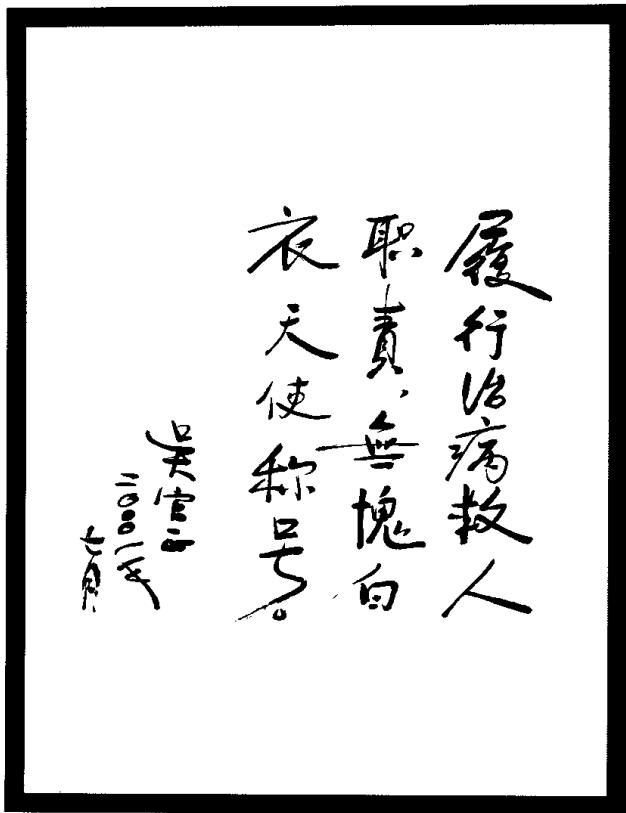 履行治病救人
职責，無愧白
衣天使称号。
吴官正
二000一年
七月